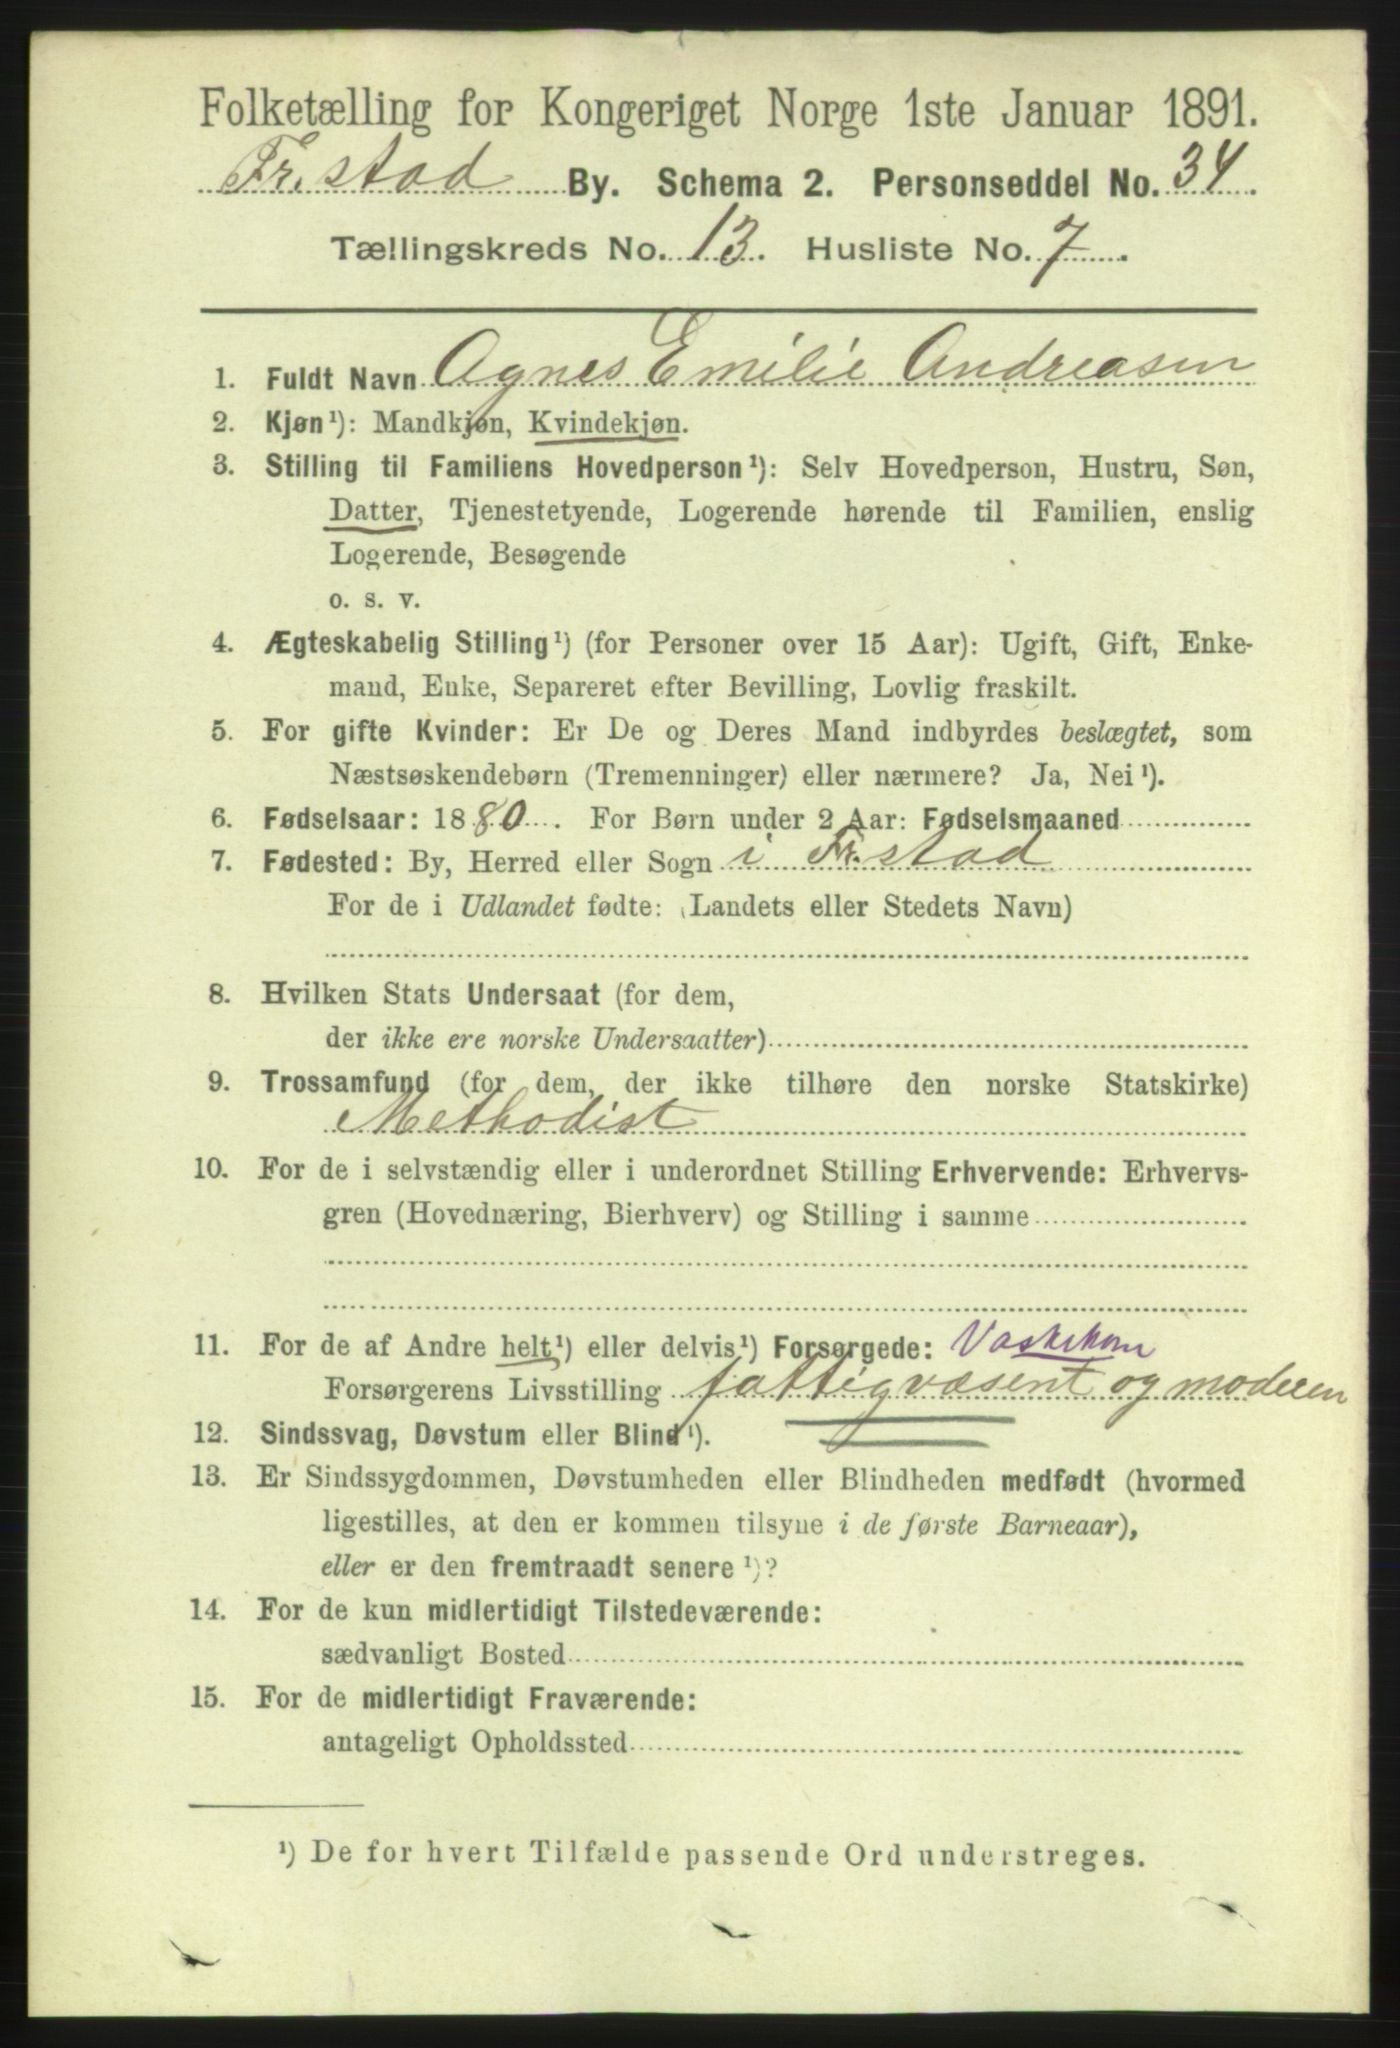 Folketælling for Kongeriget Norge 1ste Januar 1891.
Fr.stad By. Schema 2. Personseddel No. 34
Tællingskreds No. 13. Husliste No. 7.
1. Fuldt Navn Agnes Emilie Andreasen
2. Kjøn¹): Mandkjøn, Kvindekjøn.
3. Stilling til Familiens Hovedperson¹): Selv Hovedperson, Hustru, Søn,
Datter, Tjenestetyende, Logerende hørende til Familien, enslig
Logerende, Besøgende
o. s. v.
4. Ægteskabelig Stilling¹) (for Personer over 15 Aar): Ugift, Gift, Enke-
mand, Enke, Separeret efter Bevilling, Lovlig fraskilt.
5. For gifte Kvinder: Er De og Deres Mand indbyrdes beslægtet, som
Næstsøskendebørn (Tremenninger) eller nærmere? Ja, Nei¹).
6. Fødselsaar: 1880. For Børn under 2 Aar: Fødselsmaaned
7. Fødested: By, Herred eller Sogn i Fr.stad
For de i Udlandet fødte: (Landets eller Stedets Navn)
8. Hvilken Stats Undersaat (for dem,
der ikke ere norske Undersaatter)
9. Trossamfund (for dem, der ikke tilhøre den norske Statskirke)
Methodist
10. For de i selvstændig eller i underordnet Stilling Erhvervende: Erhvervs-
gren (Hovednæring, Bierhverv) og Stilling i samme
11. For de af Andre helt¹) eller delvis¹) Forsørgede: Vaskekone
Forsørgerens Livsstilling fattigvæsent og moderen
12. Sindssvag, Døvstum eller Blind¹).
13. Er Sindssygdommen, Døvstumheden eller Blindheden medfødt (hvormed
ligestilles, at den er kommen tilsyne i de første Barneaar),
eller er den fremtraadt senere¹)?
14. For de kun midlertidigt Tilstedeværende:
sædvanligt Bosted
15. For de midlertidigt Fraværende:
antageligt Opholdssted
¹) De for hvert Tilfælde passende Ord understreges.